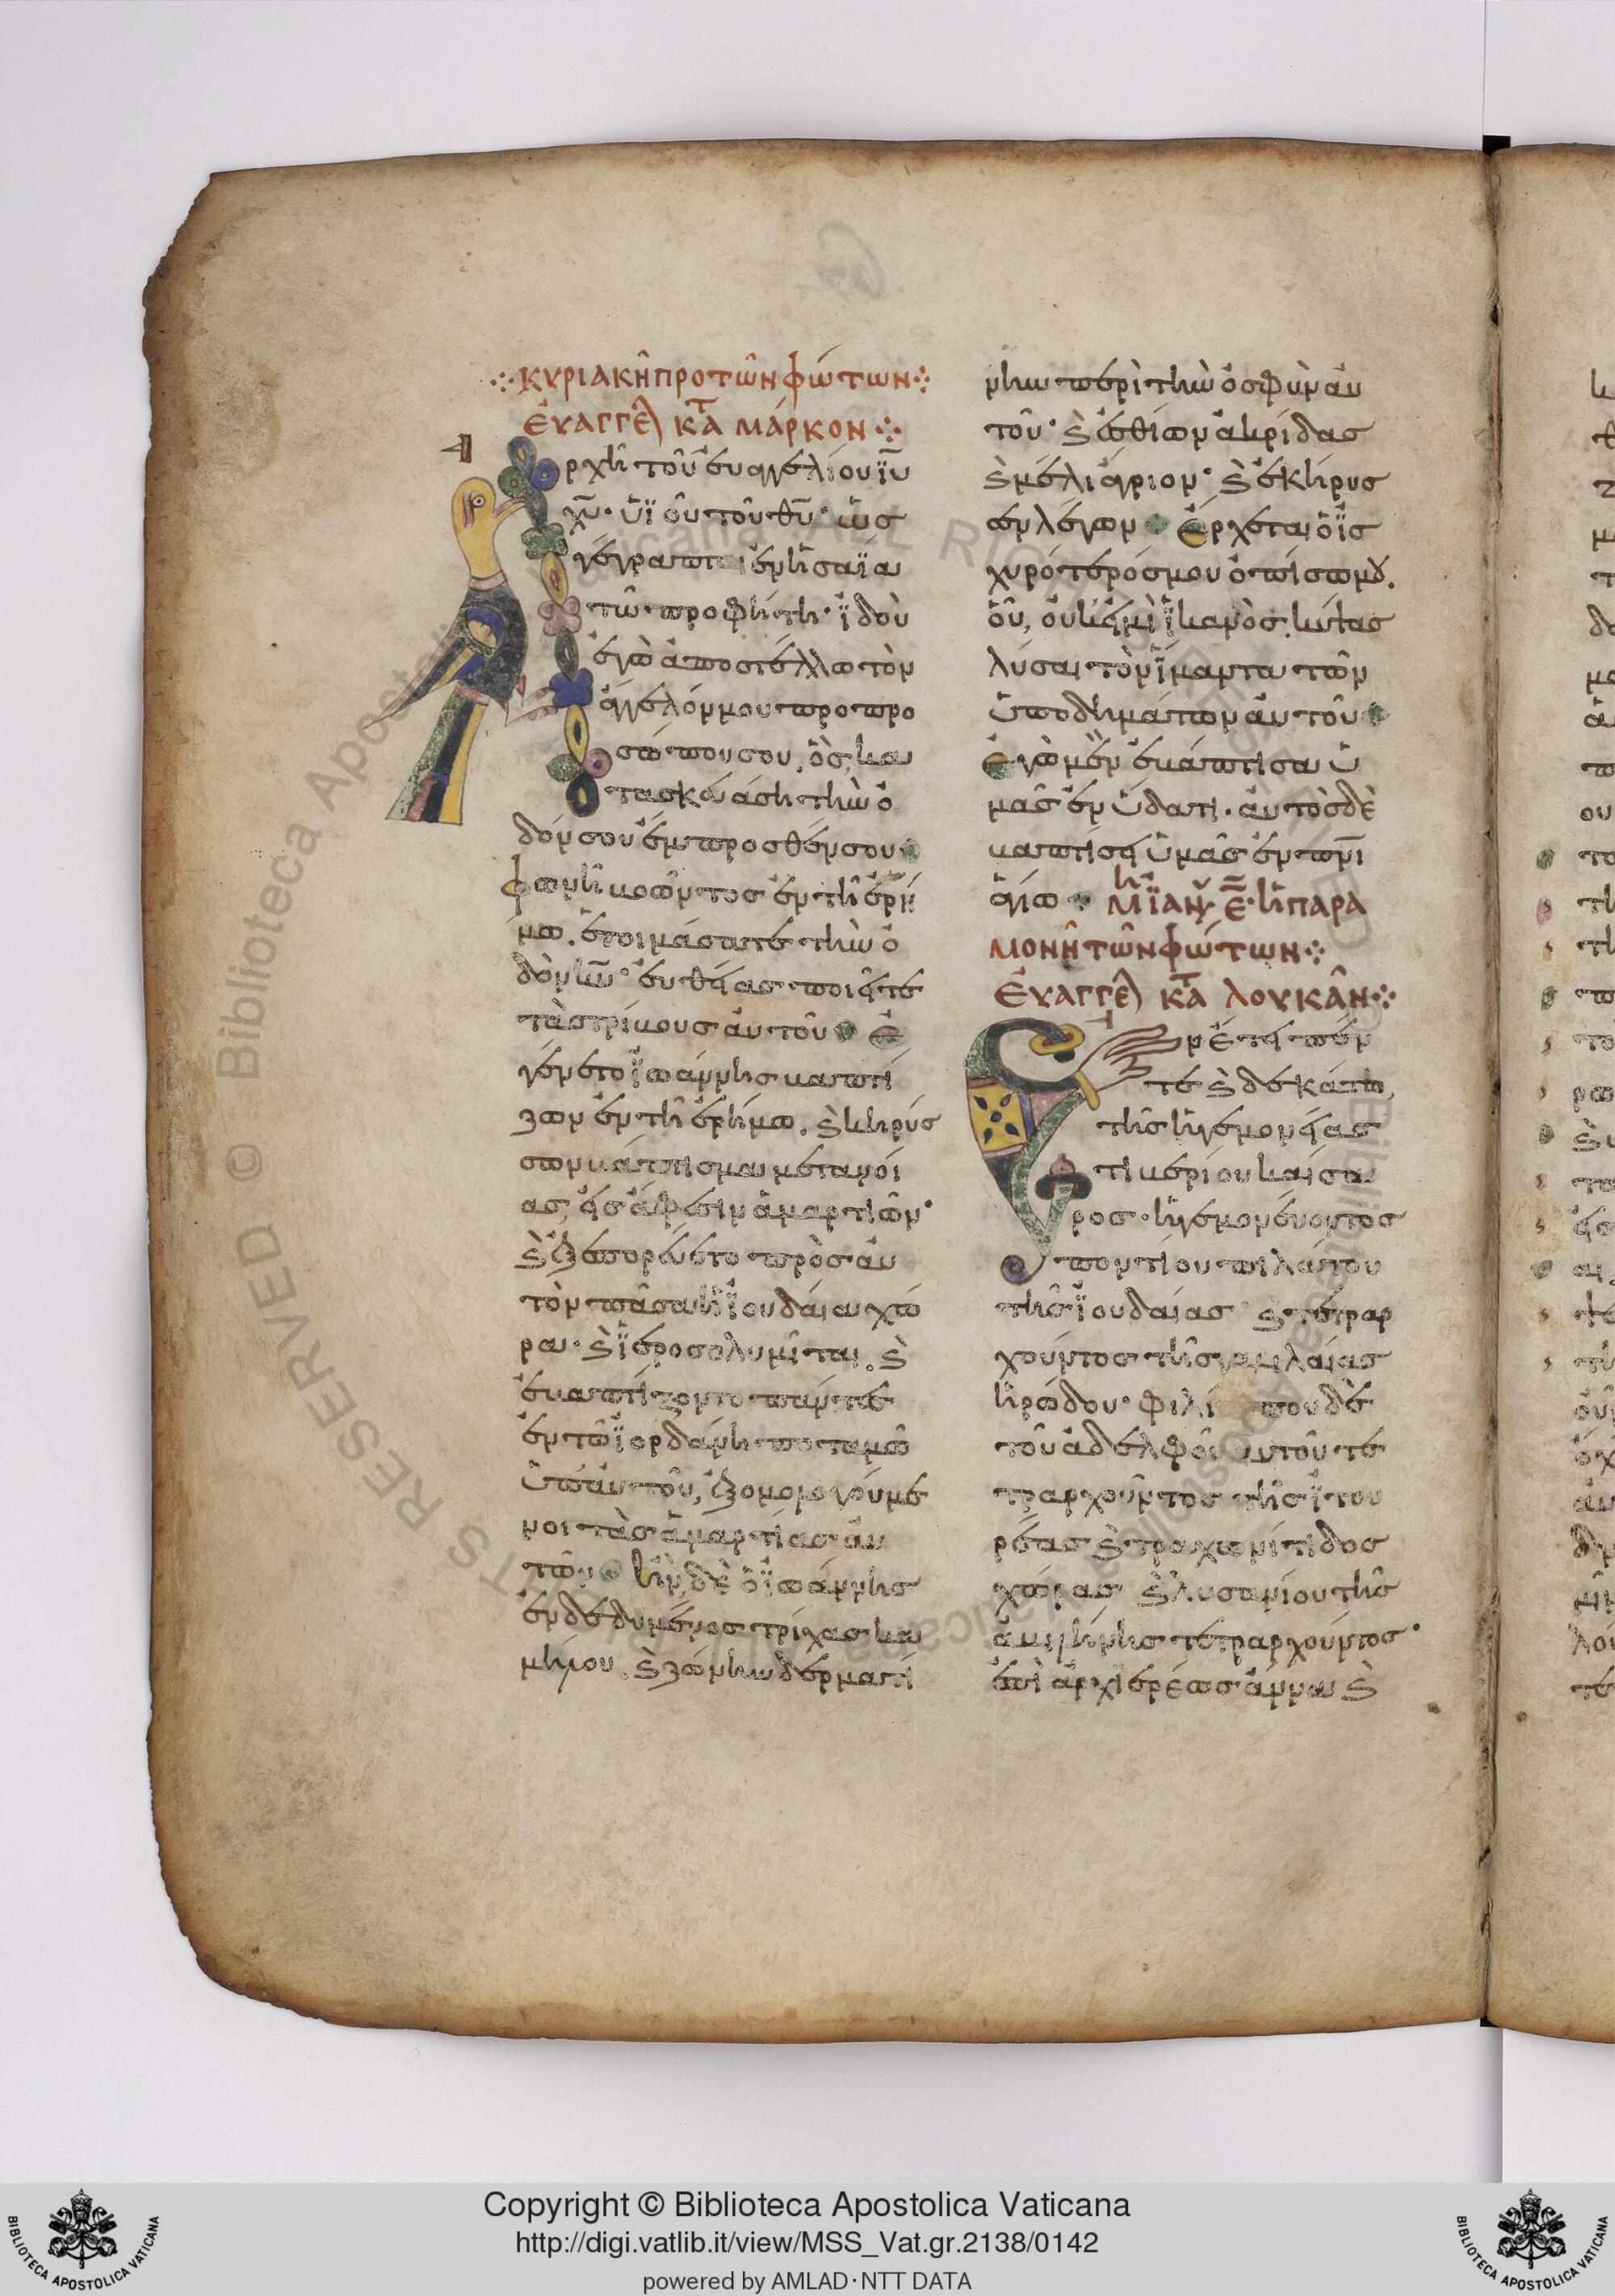 ⁘ ΚΥΡΙΑΚῆ ΠΡΟ ΤῶΝ ΦώΤΩΝ ⁘
ΕΥΑΓΓΕΛ ΚΤΑ ΜάΡΚΟΝ ⁘
Αρχὴ τοῦ εὐαγγελίου ἰυ
χυ· ὑϊοῦ τοῦ θυ· ὡς
γέγραπται ἐν ἡσαΐα
τῶ προφήτη· ἰδοὺ
ἐγὼ ἀποστέλλω τὸν
ἄγγελόν μου προ προ
σώπου σου, ὃς κα
τασκευάση τὴν ὁ
δόν σου ἔμπροσθέν σου
φωνὴ βοῶντος ἐν τῆ ἐρή
μω. ἑτοιμάσατε τὴν ὁ
δὸν κυ· εὐθείας ποιεῖτε
τὰς τρίβους αὐτοῦ ἐ
γένετο ἰωάννης βαπτί
ζων ἐν τῆ ἐρήμω. ϗ κηρύσ
σων βάπτισμα μετανοί
ας, εἰς ἄφεσιν ἁμαρτιῶν·
ϗ ἐξεπορεύετο πρὸς αὐ
τὸν πᾶσα ἡ ἰουδαία χώ
ρα· ϗ ἱεροσολυμῖται. ϗ
ἐβαπτίζοντο πάντες
ἐν τῶ ἰορδάνη ποταμῶ
ὑπ' αὐτοῦ, ἐξομολογούμε
νοι τὰς ἁμαρτίας αὐ
τῶν ἦν δὲ ὁ ἰωάννης
ἐνδεδυμένος τρίχας κα
μήλου. ϗ ζώνην δερματί
νην περὶ τὴν ὀσφὺν αὐ
τοῦ· ϗ ἐσθίων ἀκρίδας
ϗ μέλι ἄγριον· ϗ ἐκήρυσ
εν λέγων ἔρχεται ὁ ἰσ
χυρότερός μου ὀπίσω μου.
οὗ, οὐκ εἰμὶ ἱκανὸς κύψας
λύσαι τὸν ἱμάντα τῶν
ὑποδημάτων αὐτοῦ
ἐγὼ μὲν ἐβάπτισα ὑ
μᾶς ἐν ὕδατι· αὐτὸς δὲ
βαπτίσει ὑμᾶς ἐν πνι
ἁγίω ΜΗ ΪΑΝΥ Ε· Ἡ ΠΑΡΑ
ΜΟΝῆ ΤῶΝ ΦώΤΩΝ ⁘
ΕΥΑΓΓΕΛ ΚΤΑ ΛΟΥΚᾶΝ ⁘
Εν ἔτει πεν
τε ϗ δεκάτη,
τῆς ἡγεμονείας
τιβερίου καίσα
ρος· ἡγεμονεύοντος
ποντίου πιλάτου
τῆς ἰουδαίας ϗ τετραρ
χούντος τῆς γαλιλαίας
ἡρώδου· φιλίππου δὲ
τοῦ ἀδελφοῦ αὐτοῦ τε
τραρχοῦντος τῆς ἰτου
ρέας ϗ τραχωνίτιδος
χώρας ϗ λυσανίου τῆς
ἀβιληνῆς τετραρχούντος·
ἐπὶ ἀρχιερέως ἄννα ϗ
Copyright © Biblioteca Apostolica Vaticana
http://digi.vatlib.it/view/MSS_Vat.gr.2138/0142
powered by AMLAD·NTT DATA
BIBLIOTECA APOSTOLICA VATICANA
BIBLIOTECA APOSTOLICA VATICANA